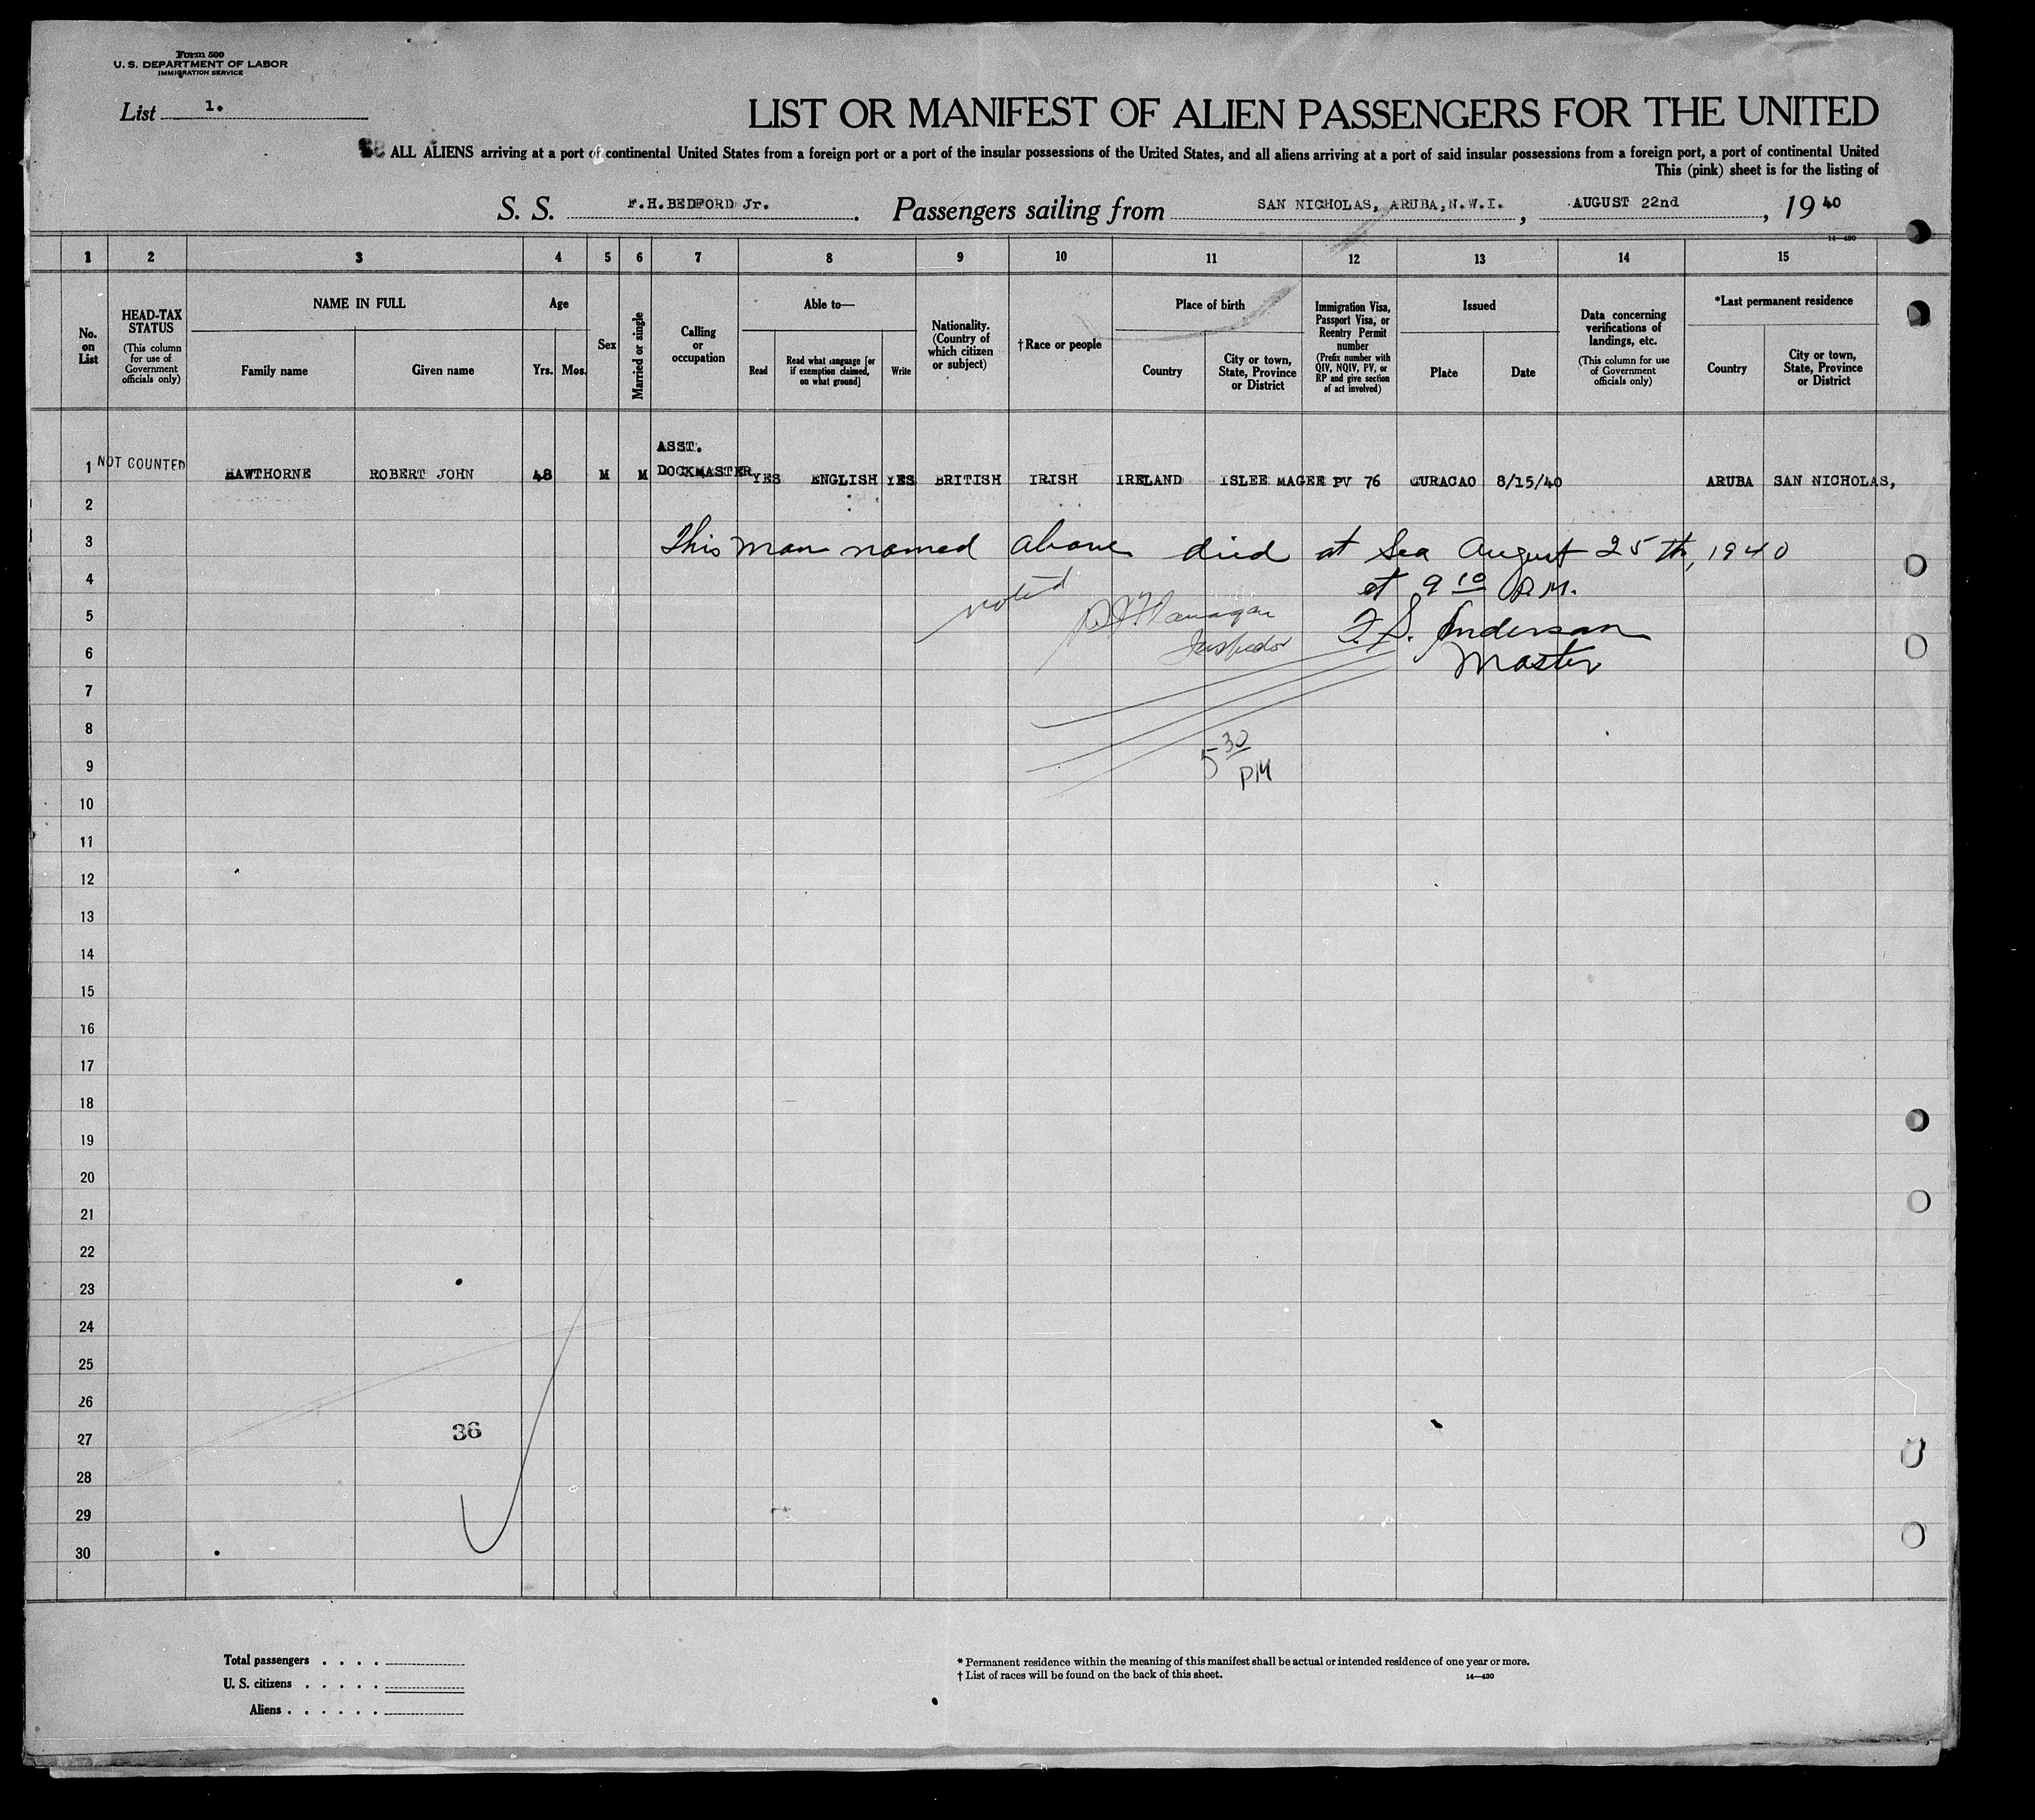 Form 500
U. S. DEPARTMENT OF LABOR
IMMIGRATION SERVICE
List 1.
LIST OR MANIFEST OF ALIEN PASSENGERS FOR THE UNITED
ALL ALIENS arriving at a port of continental United States from a foreign port or a port of the insular possessions of the United States, and all aliens arriving at a port of said insular possessions from a foreign port, a port of continental United
This (pink) sheet is for the listing of
S. S. F.H.BEDFORD Jr. . Passengers sailing from SAN NICHOLAS, ARUBA, N.W.I. , AUGUST 22nd , 19 40
14—430
1 2 3 4 5 6 7 8 9 10 11 12 13 14 15
No. on List
HEAD-TAX STATUS
(This column for use of Government officials only)
NAME IN FULL
Family name
Given name
Age
Yrs. Mos.
Sex
Married or single
Calling or occupation
Able to—
Read
Read what language [or if exemption claimed, on what ground]
Write
Nationality. (Country of which citizen or subject)
†Race or people
Place of birth
Country
City or town, State, Province or District
Immigration Visa, Passport Visa, or Reentry Permit number
(Prefix number with QIV, NQIV, PV, or RP and give section of act involved)
Issued
Place
Date
Data concerning verifications of landings, etc.
(This column for use of Government officials only)
*Last permanent residence
Country
City or town, State, Province or District
1 NOT COUNTED HAWTHORNE ROBERT JOHN 48 M M ASST. DOCKMASTER YES ENGLISH YES BRITISH IRISH IRELAND ISLEE MAGEE PV 76 CURACAO 8/15/40 ARUBA SAN NICHOLAS,
2
3 This man named above died at Sea August 25th, 1940
4 noted at 9 10 P.M.
5 Flanagan F. S. Anderson
6 Inspector Master
7
8
9 5 30 PM
10
11
12
13
14
15
16
17
18
19
20
21
22
23
24
25
26
27 36
28
29
30
Total passengers . . . .
U. S. citizens . . . . .
Aliens . . . . . .
* Permanent residence within the meaning of this manifest shall be actual or intended residence of one year or more.
† List of races will be found on the back of this sheet. 14—430